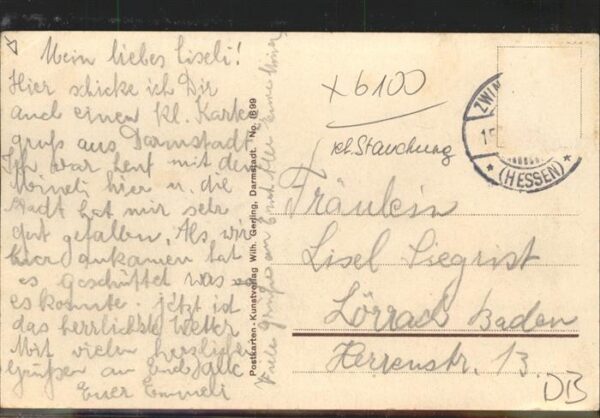 Mein liebes Liseli!
Hier schicke ich Dir
auch einen kl. Karten
gruß aus Darmstadt.
Ich war heut mit dem
hier u. die
Stadt hat mir sehr
gut gefallen. Als wir
hier ankamen hat
es geschüttet was
es konnte. jetzt ist
das herrlichste Wetter
Mit vielen herzlichen
Grüßen an Euch alle
Euer Emmeli
Viele Grüße an Euch Alle
Postkarten-Kunstverlag Wilh. Gerling, Darmstadt. No. 1699
x6100
kl. Stauchung
ZWIN
15
* (HESSEN) *
Fräulein
Lisel Siegrist
Lörrach Baden
Herrenstr. 13
DB